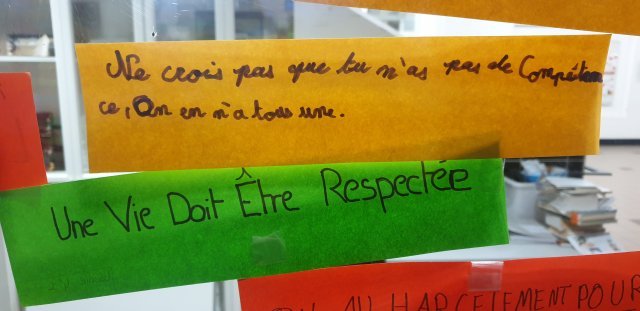 Ne crois pas que tu n'as pas de Compéten
ce, On en n'a tous une.
Une Vie Doit Être Respectée
AU HARCELEMENT POUR